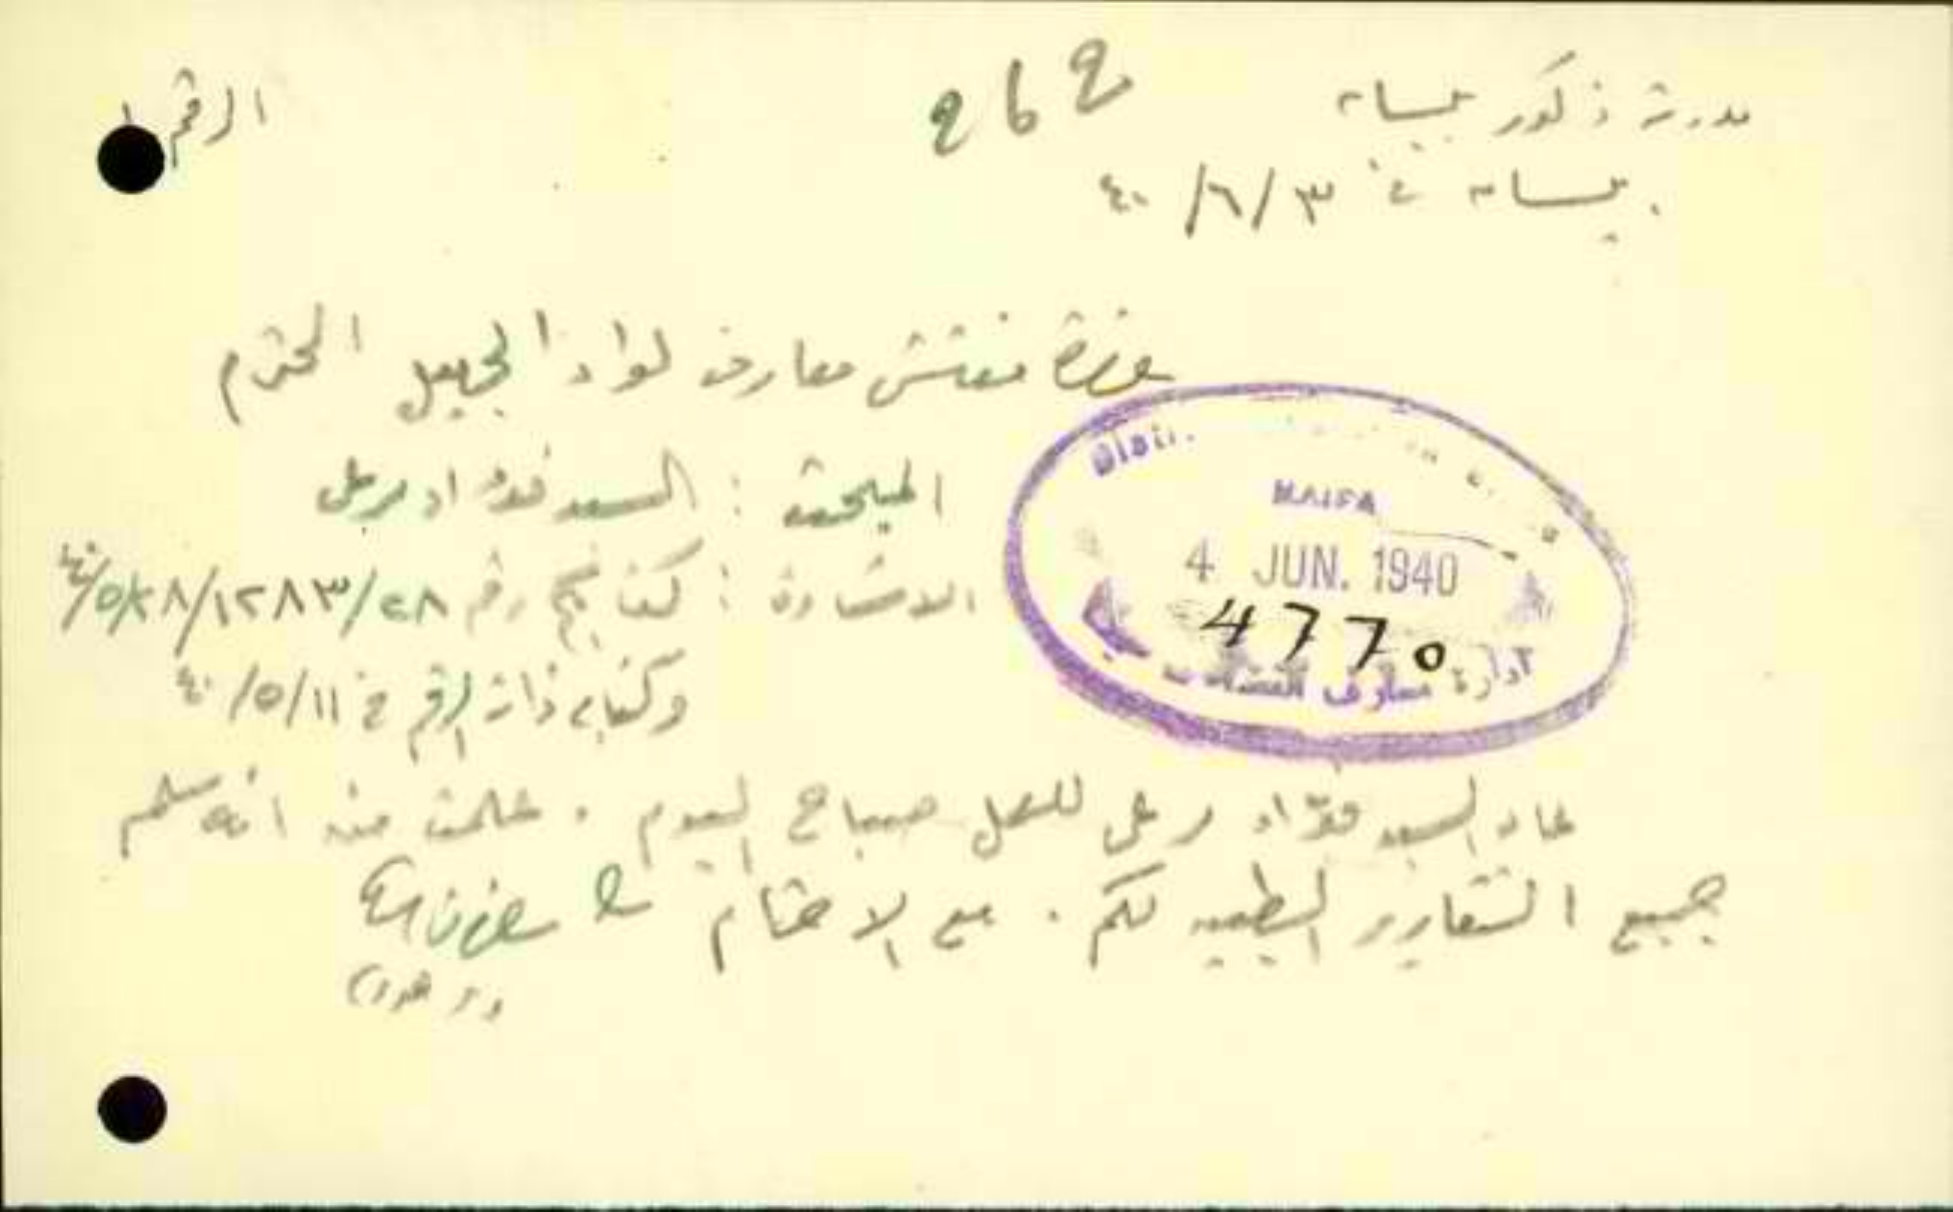 الرقم
مدرسة ذكور بيسان
بيسان في ٣/٦/٤٠
حضرة مفتش معارف لواء الجليل المحترم
المبحث : السيد فؤاد
الاشارة : كتابكم رقم ٢٨/١٢٨٣/٢٨/٥/٤٠
وكتابي ذات الرقم في ١١/٥/٤٠
HAIFA
4 JUN. 1940
4770
ادارة معارف
عاد السيد فؤاد للعمل صباح اليوم . علمت منه انه سلم
جميع التقارير الطبية لكم . مع الاحترام